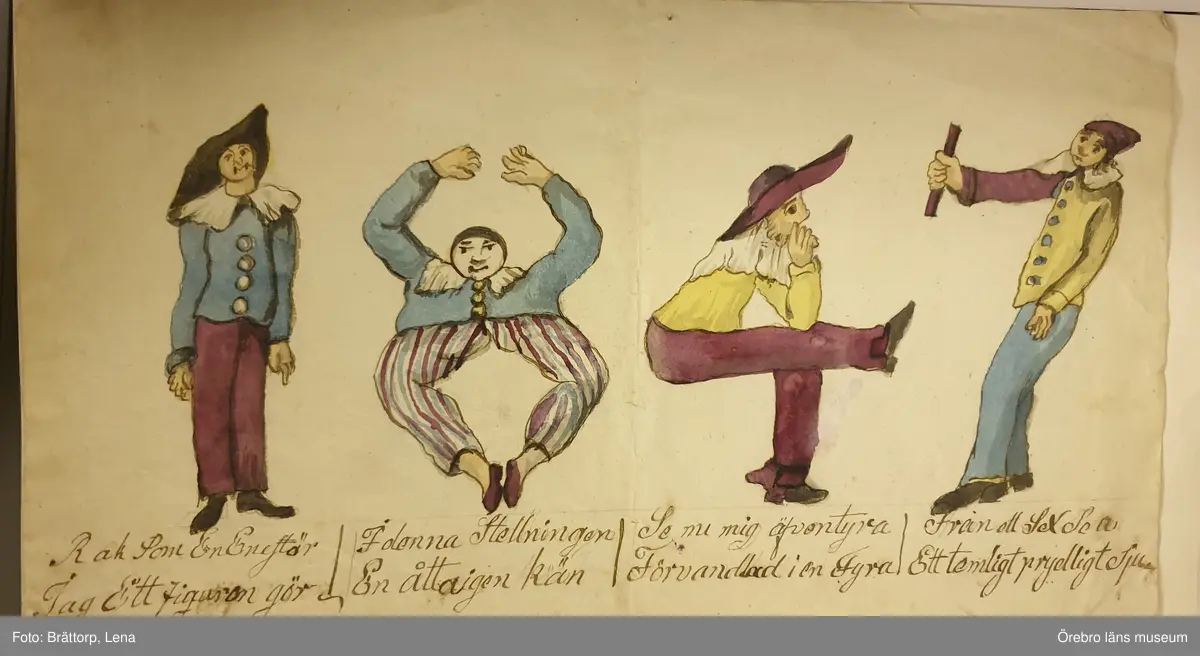 Rak Som En Enestör
Jag Ett figuren gör
I denna Stellningen
En åtta igen kän
Se nu mig äfventyra
Förvandlad i en fyra
Från ell Sex Se a
Ett temligt prydligt Sju
Foto: Bråttorp, Lena
Örebro läns museum